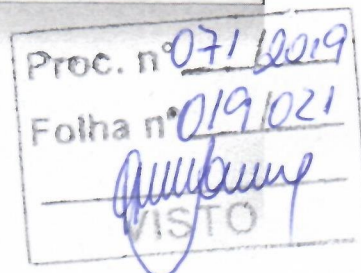 Proc. nº 071/2019
Folha nº 019/021
VISTO